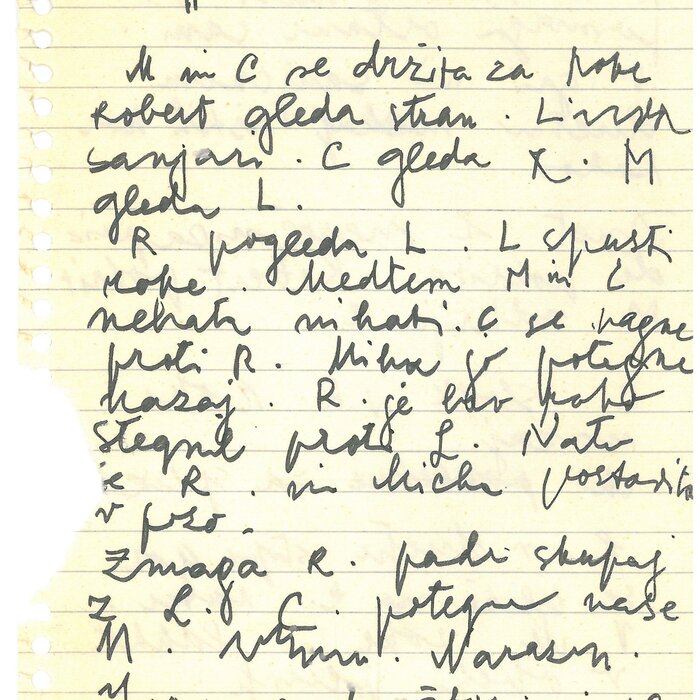 M in C se držita za roke
Robert gleda stran.
sanjari. C gleda R. M
gleda L.
R pogleda L. L spusti
roke. Medtem M in C
nehata nihati. C se nagne
proti R. Miha jo potegne
nazaj. R. je eno roko
stegnil proti L. Nato
je R. in Micha postavita
v pozo.
Zmaga R. pade skupaj
z L. C. potegne nase
M.